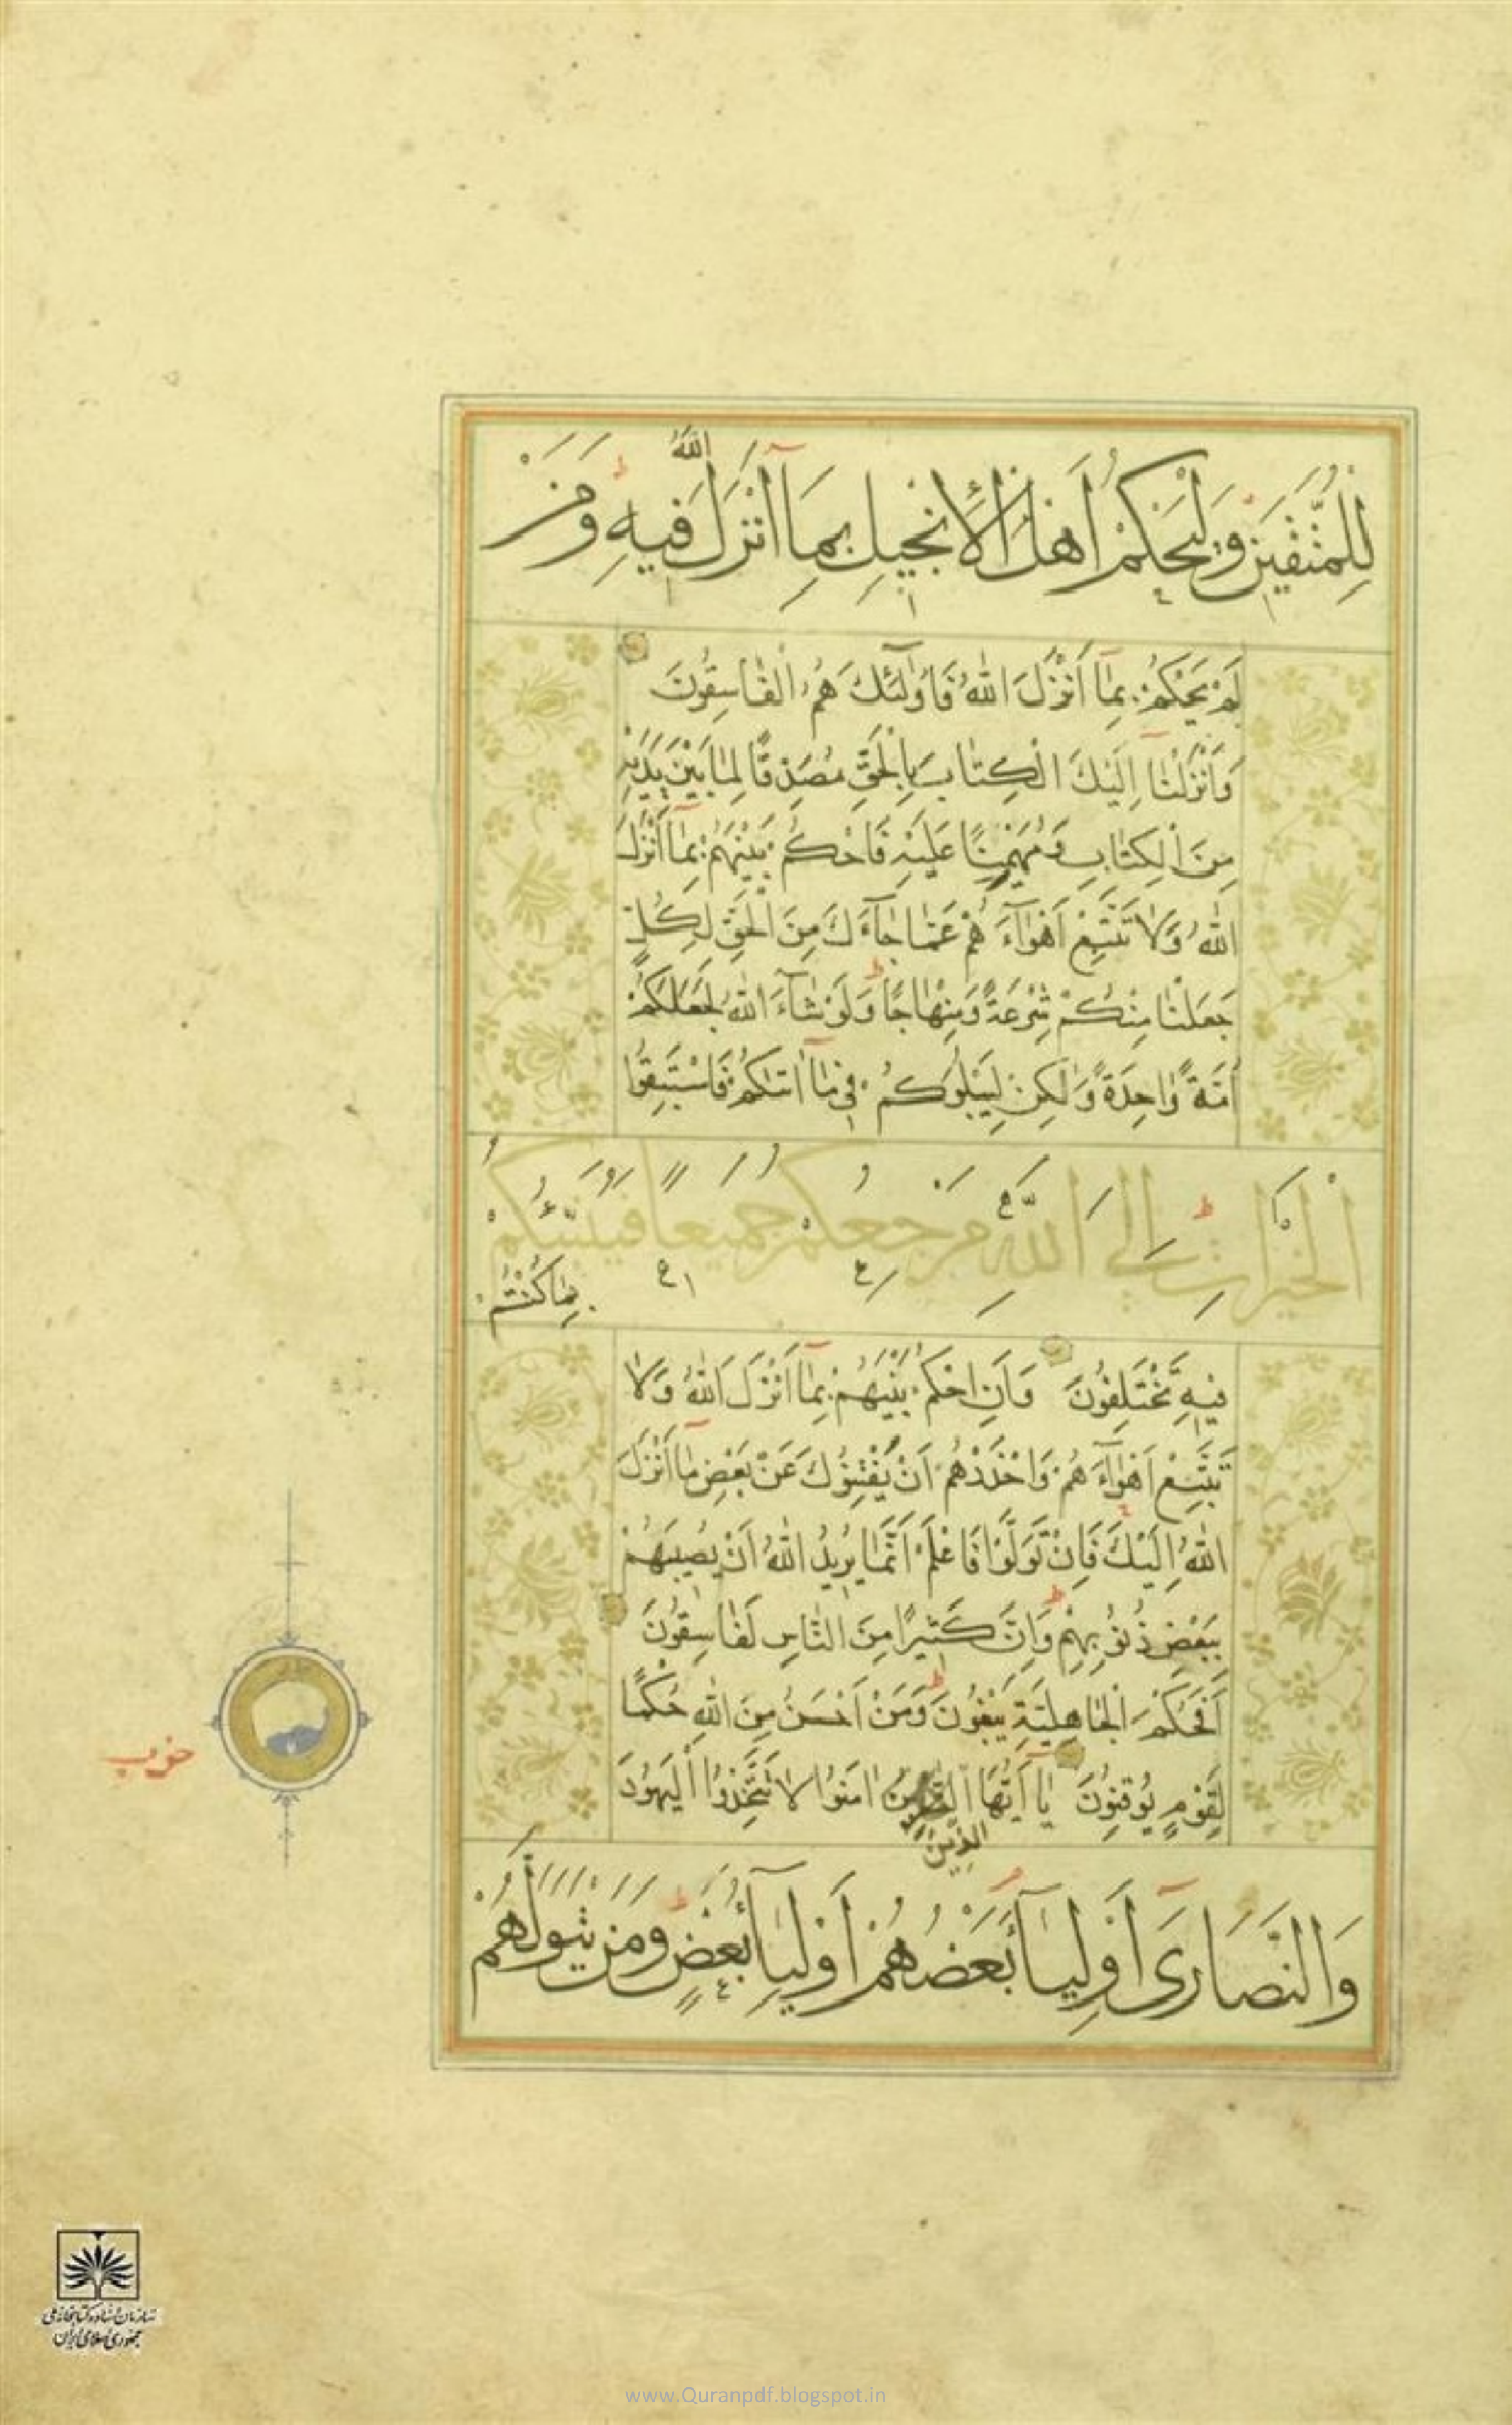 لِلْمُتَّقِينَ وَلْيَحْكُمْ أَهْلُ الْإِنْجِيلِ بِمَا أَنْزَلَ اللَّهُ فِيهِ وَمَنْ
لَمْ يَحْكُمْ بِمَا أَنْزَلَ اللَّهُ فَأُولَٰئِكَ هُمُ الْفَاسِقُونَ
وَأَنْزَلْنَا إِلَيْكَ الْكِتَابَ بِالْحَقِّ مُصَدِّقًا لِمَا بَيْنَ يَدَيْهِ
مِنَ الْكِتَابِ وَمُهَيْمِنًا عَلَيْهِ فَاحْكُمْ بَيْنَهُمْ بِمَا أَنْزَلَ
اللَّهُ وَلَا تَتَّبِعْ أَهْوَاءَهُمْ عَمَّا جَاءَكَ مِنَ الْحَقِّ لِكُلٍّ
جَعَلْنَا مِنْكُمْ شِرْعَةً وَمِنْهَاجًا وَلَوْ شَاءَ اللَّهُ لَجَعَلَكُمْ
أُمَّةً وَاحِدَةً وَلَٰكِنْ لِيَبْلُوَكُمْ فِي مَا آتَاكُمْ فَاسْتَبِقُوا
الْخَيْرَاتِ إِلَى اللَّهِ مَرْجِعُكُمْ جَمِيعًا فَيُنَبِّئُكُمْ
بِمَا كُنْتُمْ
فِيهِ تَخْتَلِفُونَ وَأَنِ احْكُمْ بَيْنَهُمْ بِمَا أَنْزَلَ اللَّهُ وَلَا
تَتَّبِعْ أَهْوَاءَهُمْ وَاحْذَرْهُمْ أَنْ يَفْتِنُوكَ عَنْ بَعْضِ مَا أَنْزَلَ
اللَّهُ إِلَيْكَ فَإِنْ تَوَلَّوْا فَاعْلَمْ أَنَّمَا يُرِيدُ اللَّهُ أَنْ يُصِيبَهُمْ
بِبَعْضِ ذُنُوبِهِمْ وَإِنَّ كَثِيرًا مِنَ النَّاسِ لَفَاسِقُونَ
أَفَحُكْمَ الْجَاهِلِيَّةِ يَبْغُونَ وَمَنْ أَحْسَنُ مِنَ اللَّهِ حُكْمًا
لِقَوْمٍ يُوقِنُونَ يَا أَيُّهَا الَّذِينَ آمَنُوا لَا تَتَّخِذُوا الْيَهُودَ
الَّذِينَ
وَالنَّصَارَىٰ أَوْلِيَاءَ بَعْضُهُمْ أَوْلِيَاءُ بَعْضٍ وَمَنْ يَتَوَلَّهُمْ
حزب
سازمان اسناد و کتابخانه ملی
جمهوری اسلامی ایران
www.Quranpdf.blogspot.in